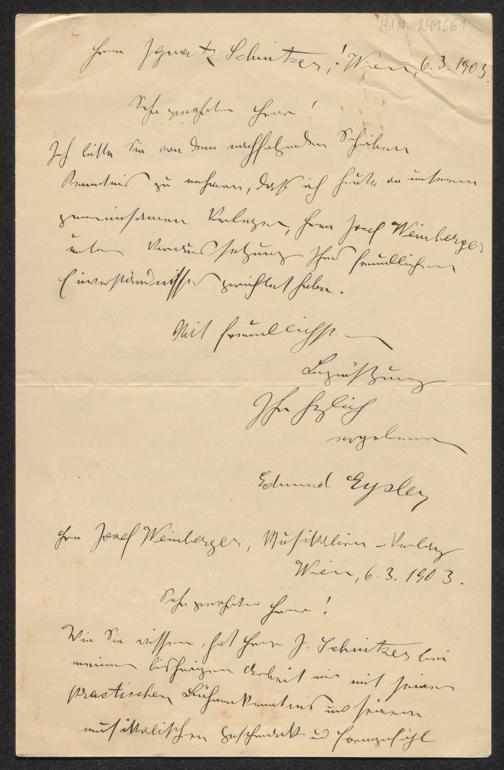 H.I.N. 249561
Herrn Ignatz Schnitzer! Wien, 6.3.1903.
Sehr geehrter Herr!
Ich bitte Sie von dem nachfolgenden Schreiben
Kenntnis zu nehmen, daß ich heute an unseren
gemeinsamen Verleger, Herrn Josef Weinberger
unter Voraussetzung Ihres freundlichen
Einverständnisses gerichtet habe.
Mit freundlichster
Begrüßung
Ihr herzlich
ergebener
Edmund Eysler
Herrn Josef Weinberger, Musikalien-Verlag
Wien, 6.3.1903.
Sehr geehrter Herr!
Wie Sie wissen, hat Herr J. Schnitzer bei
meiner bisherigen Arbeit mir mit seiner
practischen Bühnenkenntnis und seinem
musikalischen Geschmack u Formgefühl